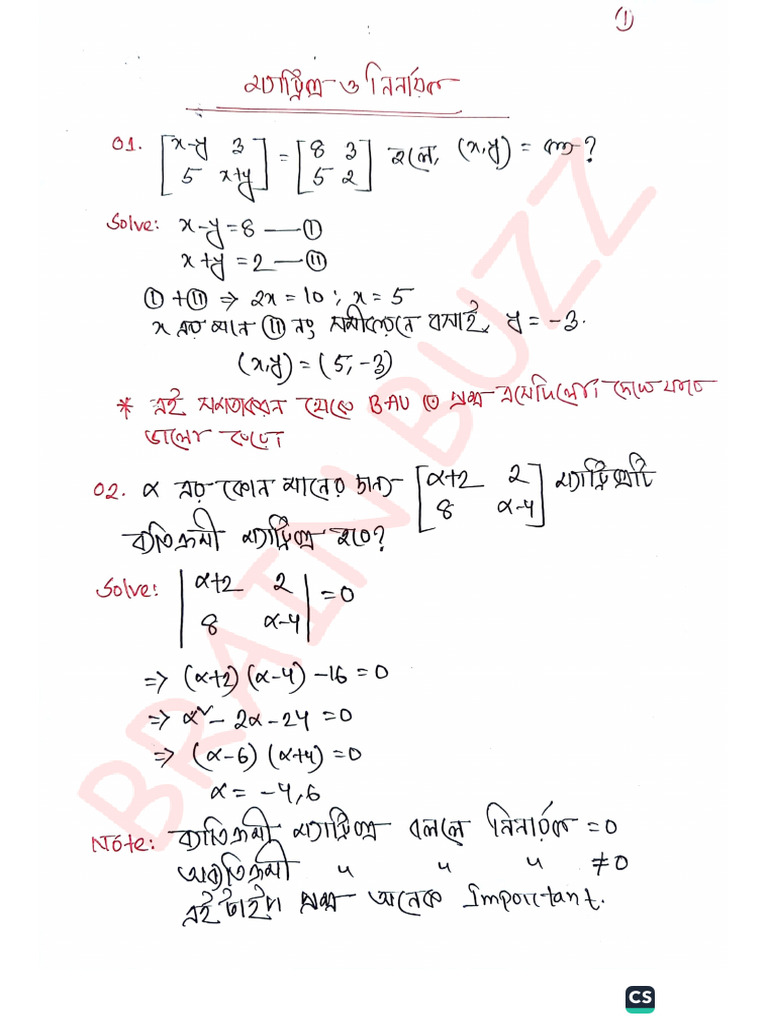 ①
ম্যাট্রিক্স ও নির্নায়ক
01. [x-y 3 5 x+y] = [8 3 5 2] হলে, (x,y) = কত?
Solve: x-y=8 —— ①
x+y=2 —— ⑪
① + ⑪ ⇒ 2x=10; x=5
x এর মান ⑪ নং সমীকরনে বসাই, y = -3.
(x,y) = (5,-3)
* এই সমতাকরন থেকে BAU তে প্রশ্ন এসেছিলো। দেখে যাবে
ভালো করে।
02. α এর কোন মানের জন্য [α+2 2 8 α-4] ম্যাট্রিক্সটি
ব্যতিক্রমী ম্যাট্রিক্স হবে?
Solve: |α+2 2 8 α-4| = 0
⇒ (α+2) (α-4) -16 = 0
⇒ α² - 2α - 24 = 0
⇒ (α-6) (α+4) = 0
α = -4, 6
Note: ব্যতিক্রমী ম্যাট্রিক্স বললে নির্নায়ক = 0
অব্যতিক্রমী " " " ≠ 0
এই টাইপ প্রশ্ন অনেক Important.
BRAIN BUZZ
CS